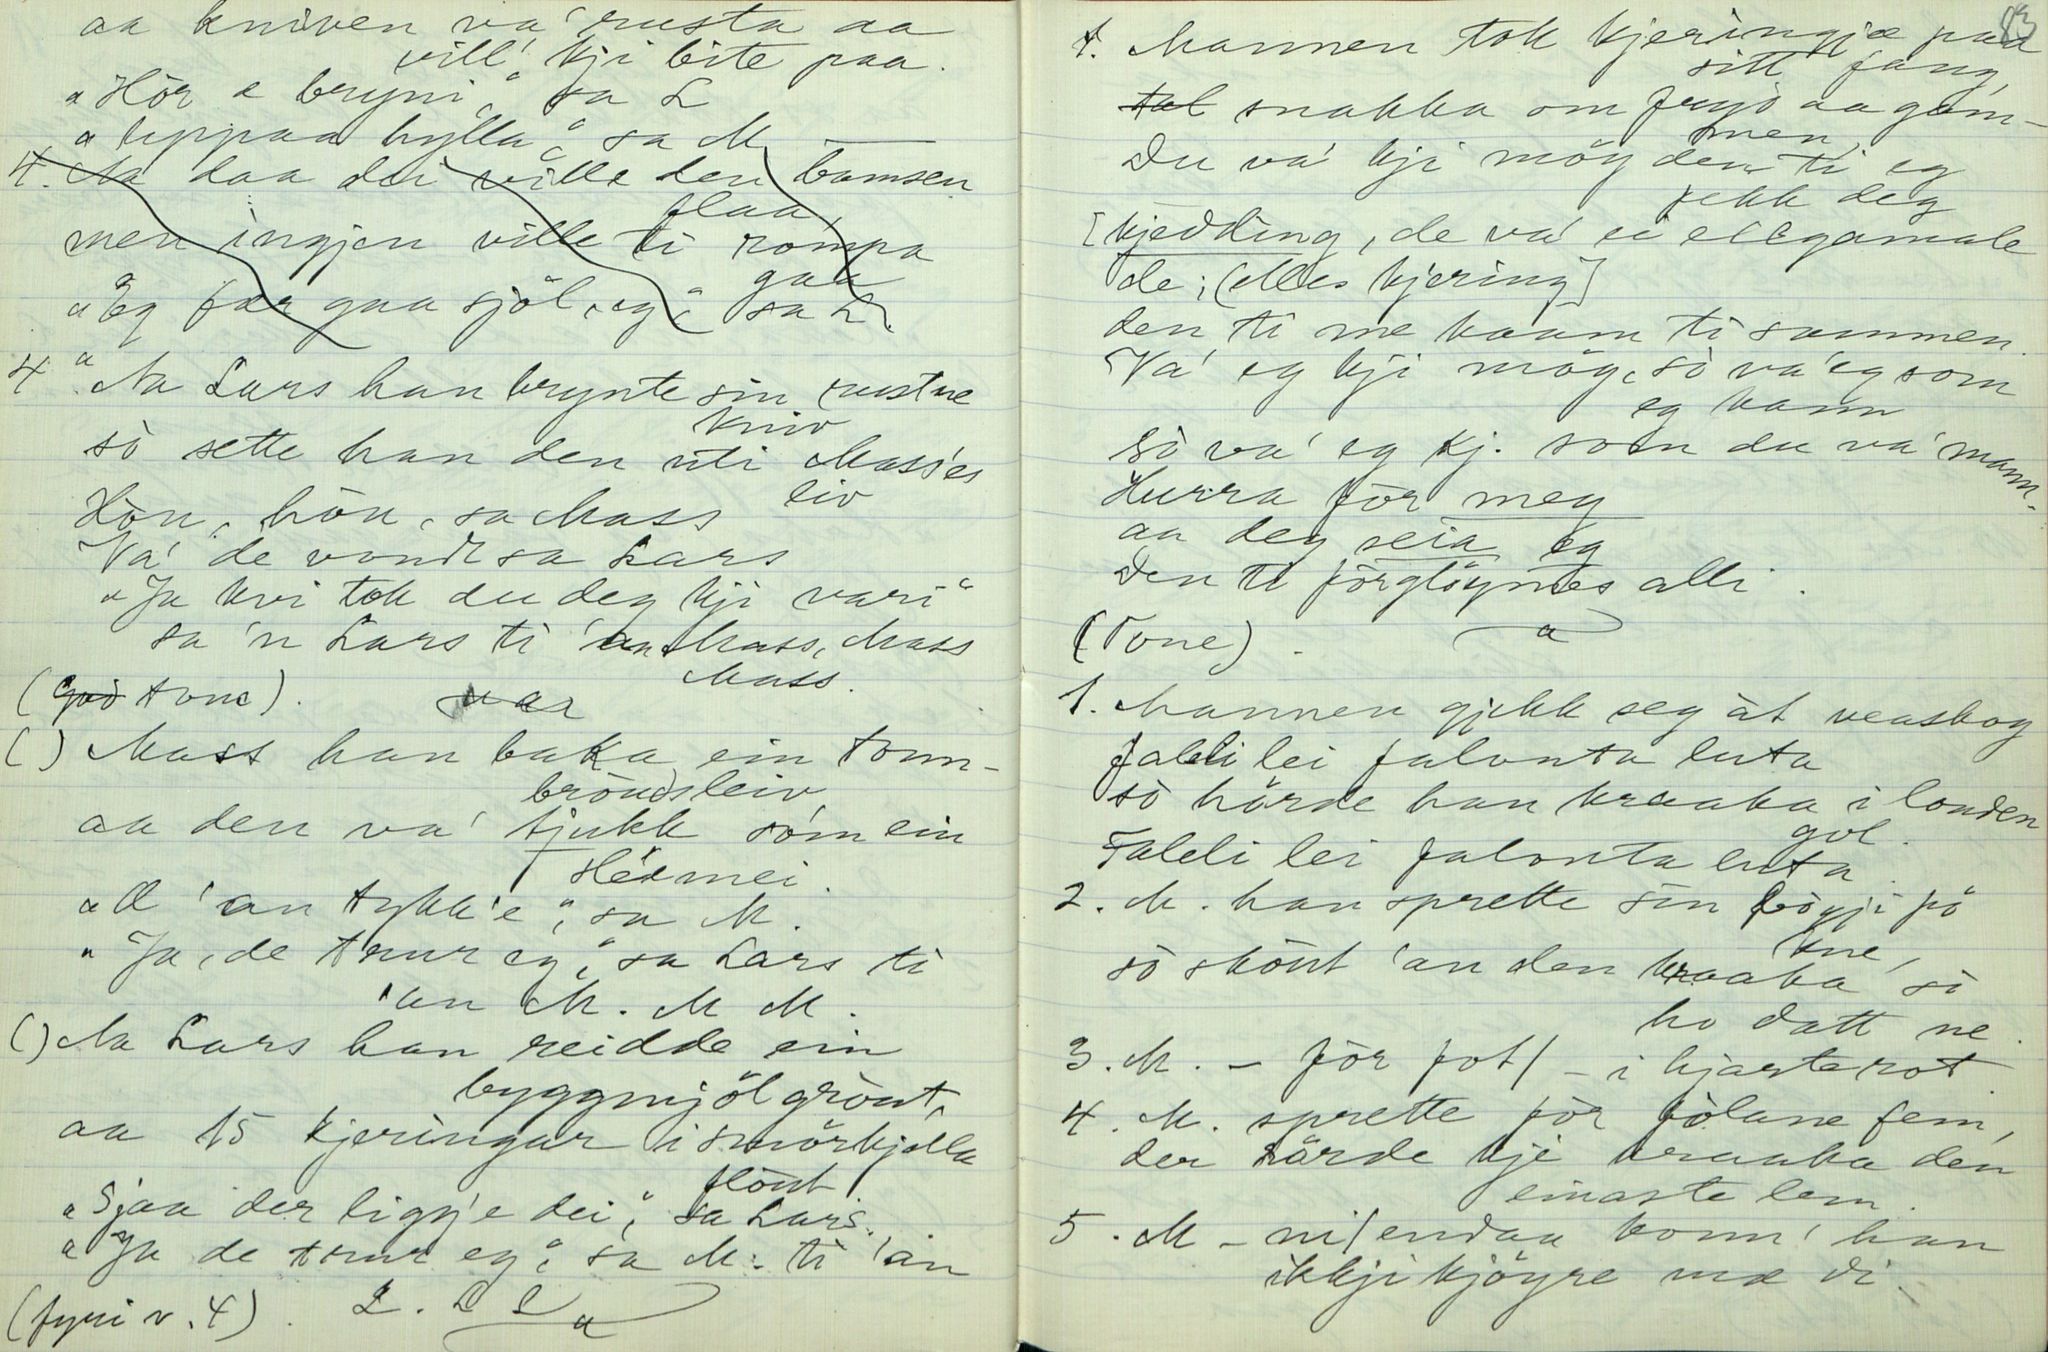 aa kniven va' rusta aa
vill' kji bite paa.
"Hör e bryni," sa L
"Uppaa hylla," sa M.
4. Aa daa dei ville den bamsen
flaa,
men ingjen ville ti rompa
gaa
"Eg fær gaa sjöl, eg," sa L.
4 a. Aa Lars han brynte sin rustne
kniv
sò sette han den uti Mass'es
liv
Hòn, hòn, sa Mass
Va' de vondt sa Lars
"Ja kvi tok du deg kji vari"
sa 'n Lars ti 'an Mass, Mass
Mass.
(god tone).
() Mass han baka ein tonn-
bröudsleiv
aa den va' tjukk som ein
"O 'an tykk'e", sa M.
"Ja, de trur eg," sa Lars ti
'an M. M M.
() Aa Lars han reidde ein
byggmjölgròut,
aa 15 kjeringar i smörkjella
flòut
"Sjaa der ligg'e dei," sa Lars.
"Ja de trur eg," sa M. ti 'an
L. L L
(fyri v. 4).
13
4. Mannen tok kjeringje paa
sitt fang,
tal snakka om frygd aa gam-
men
Du va' kji möy den ti eg
fekk deg
[kjedding, de va' ei ellgamale
de; (elles kjering]
den ti me kaam ti sammen.
Va' eg kji möy, sò va' eg som
eg kann
sò va' eg kj. som du va' mann.
Hurra för meg
aa deg seia eg
Den ti förglöymes alli.
(Tone).
1. Mannen gjekk seg åt veaskog
faldi lei falonta luta
sò hörde han kraaka i londen
gol.
Faldi lei falonta luta
2. M. han sprette sin bògji pò
kne,
sò skòut 'an den kraaka sò
ho datt ne.
3. M. - för fot / - i hjarterot
4. M. sprette för fòlane fem,
der lärde kji kraaka den
einaste lem.
5. M - ni / endaa konn' han
ikkji kjöyre mæ di.